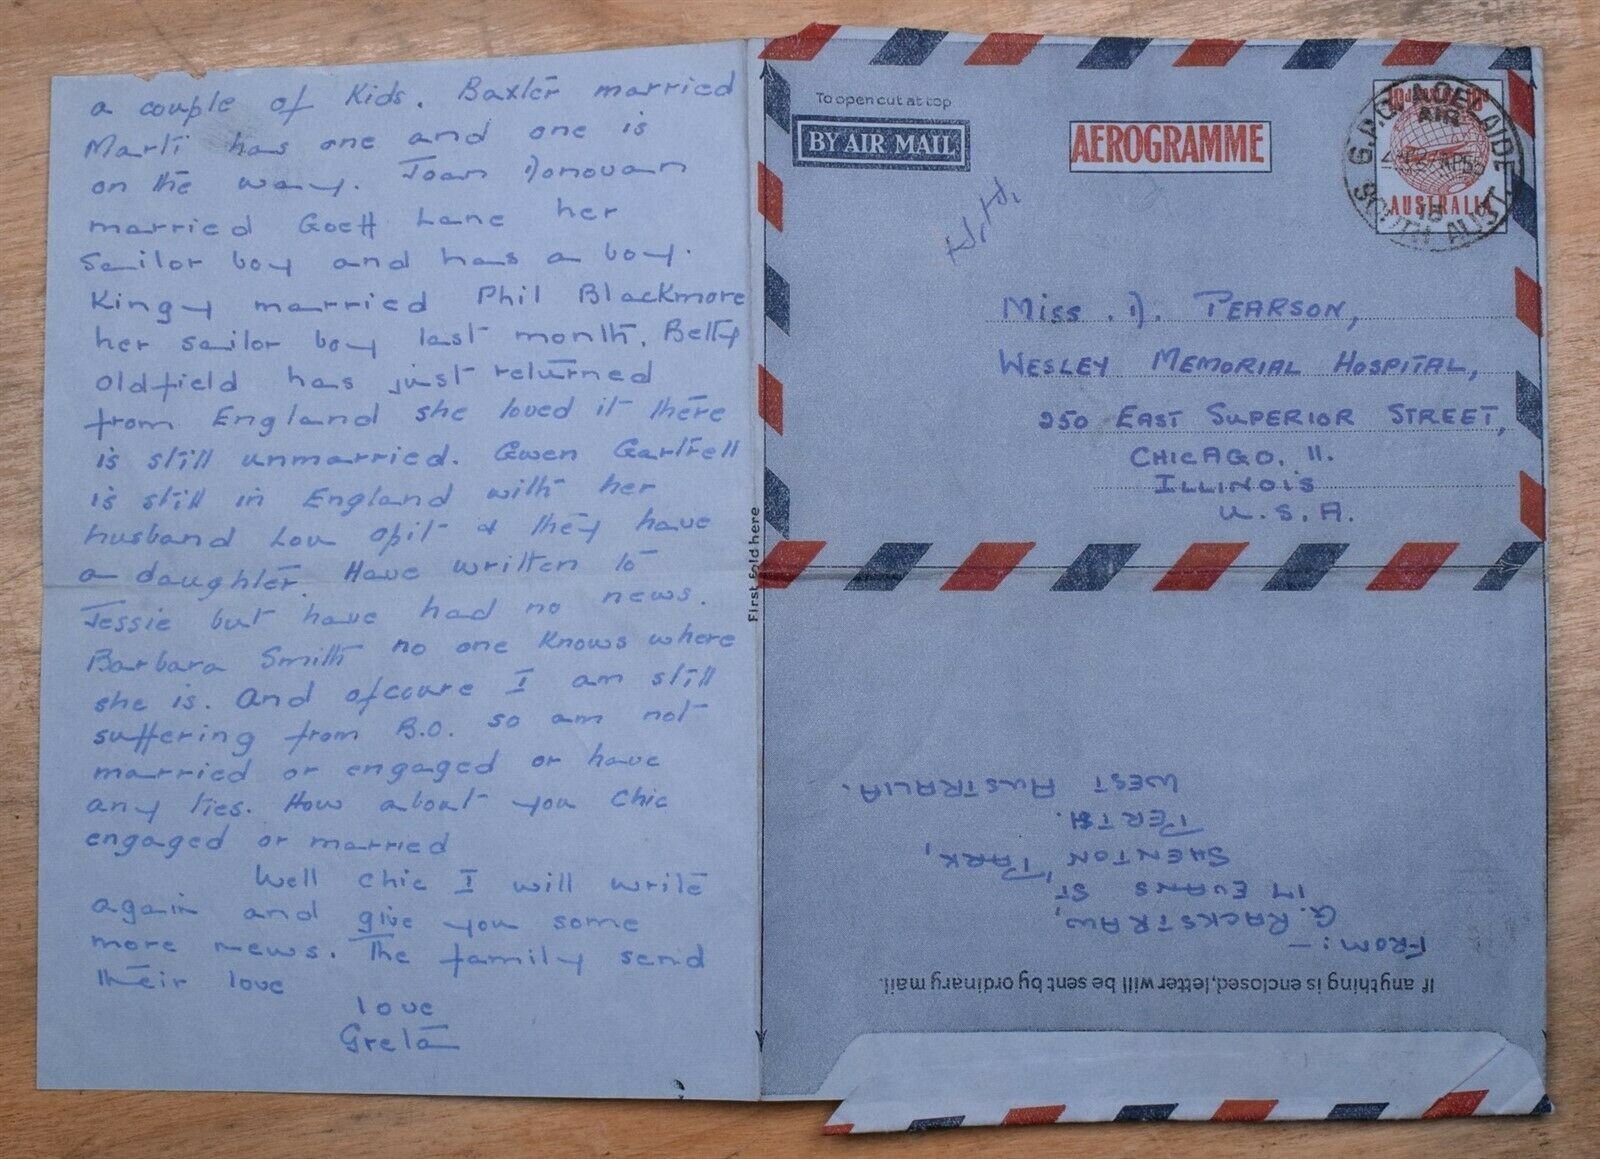 a couple of Kids. Baxter married
Marti has one and one is
on the way. Joan Donovan
married Goeff Lane her
sailor boy and has a boy.
Kingy married Phil Blackmore
her sailor boy last month. Betty
Oldfield has just returned
from England she loved it there
is still unmarried. Gwen Gartrell
is still in England with her
husband Lou Opit & they have
a daughter. Have written to
Jessie but have had no news.
Barbara Smith no one knows where
she is. And ofcoure I am still
suffering from B.O. so am not
married or engaged or have
any ties. How about you Chic
engaged or married
Well Chic I will write
again and give you some
more news. The family send
their love
love
Greta
To open cut at top
BY AIR MAIL
AEROGRAMME
AUSTRALIA
G.P.O. ADELAIDE
AIR
15
SOUTH AUST.
Miss. D. PEARSON,
WESLEY MEMORIAL HOSPITAL,
250 EAST SUPERIOR STREET,
CHICAGO. 11.
ILLINOIS
U.S.A.
First fold here
If anything is enclosed, letter will be sent by ordinary mail.
FROM:-
G. RACKSTRAW,
17 EVANS ST,
SHENTON PARK,
PERTH.
WEST AUSTRALIA.